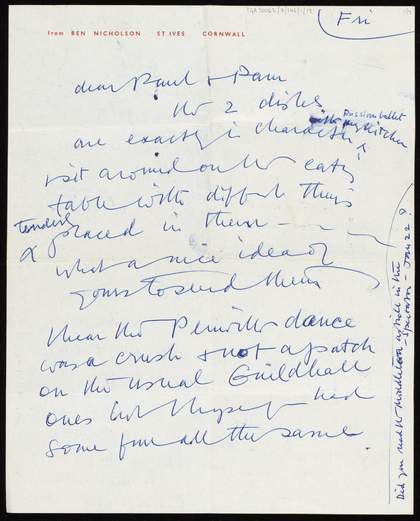 Fri
from BEN NICHOLSON ST IVES CORNWALL
dear Paul &
the 2 dishes
are exactly in character
Russian ballet
kitchen
sit around on the
table with diffent things
placed in them —
what a nice idea of
yours to send them
I hear the Penwith dance
was a crush & not a patch
on the usual Guildhall
ones but I hope you had
some fun all the same
Did you read the Middleton article in the
Spectator - Jan 22 ?